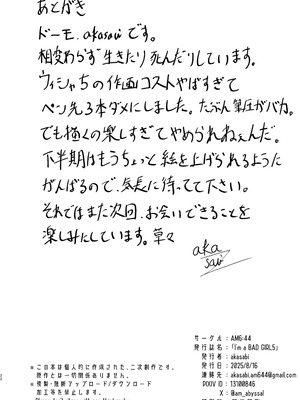 あとがき
ドーモ、akasabiです。
相変わらず生きたり死んだりしています。
ウィシャちの作画コストやばすぎて
ペン先3本ダメにしました。たぶん筆圧がバカ。
でも描くの楽しすぎてやめられねぇんだ。
下半期はもうちょっと絵を上げられるように
がんばるので、気長に待ってて下さい。
それではまた次回、お会いできることを
楽しみにしています。草々
aka
sabi
サークル：AM6:44
発行誌名：「I'm a BAD GIRLS」
発行者：akasabi
発行日：2025/8/16
連絡先：akasabi.am644@gmail.com
PIXIV ID：13100846
X：@am_abyssal
※この本は個人的に作成された、二次創作です。
原作とは一切関係ありません。
※複製・無断アップロード/ダウンロード
加工等を禁止します。